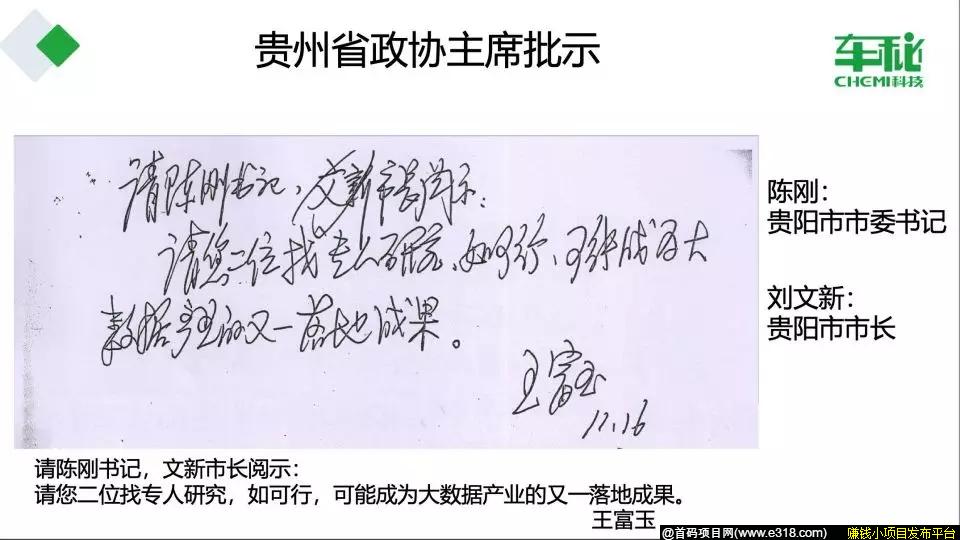 贵州省政协主席批示
车秘
CHEMI科技
请陈刚书记，文新市长阅示：
请您二位找专人研究，如可行，可能成为大
数据产业的又一落地成果。
王富玉
11.16
陈刚：
贵阳市市委书记
刘文新：
贵阳市市长
请陈刚书记，文新市长阅示：
请您二位找专人研究，如可行，可能成为大数据产业的又一落地成果。
王富玉
@首码项目网(www.e318.com)
赚钱小项目发布平台